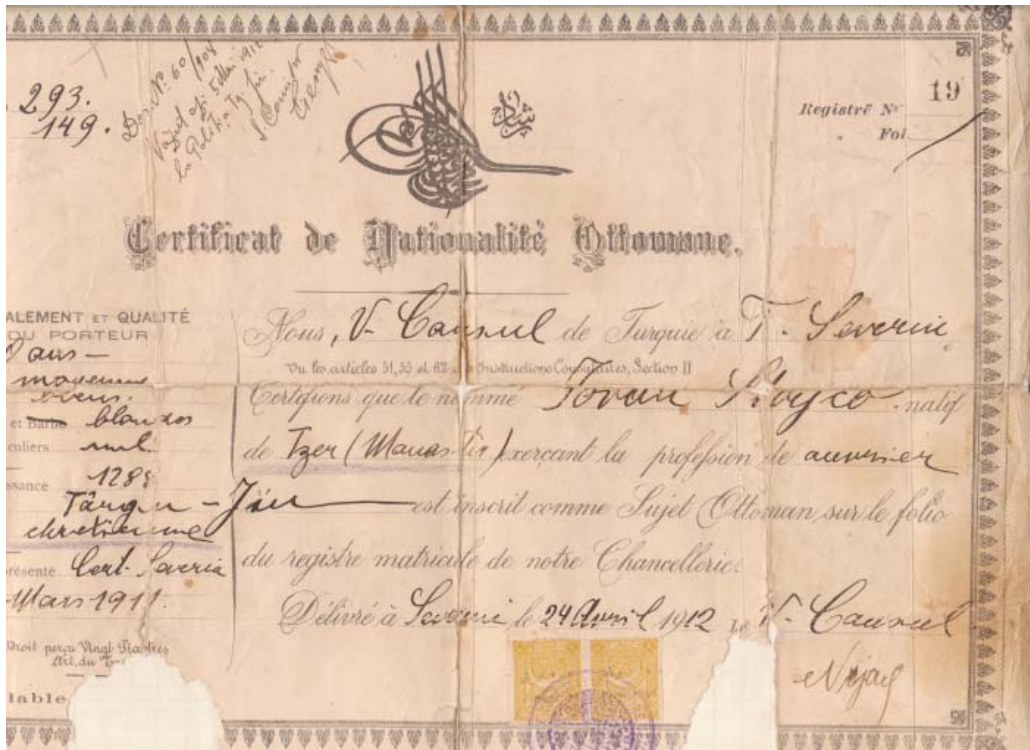 293.
149.
Dos. N° 60/908
5 Mai 1912
رشاد
Registre N° 19
" Fol
Certificat de Nationalité Ottomane.
ALEMENT ET QUALITÉ
DU PORTEUR
ans —
moyenne
et Barbe blondes
culiers nul
ssance 1288
Târgu - Jiu
chretienne
présente Cert. Saveria
Mars 1911
Droit perçu Vingt Piastres
Art. du
lable
Nous, V- Consul de Turquie à T- Severin
Vu les articles 51, 53 et 62 des Instructions Consulaires, Section II
Certifions que le nommé Iovan Stoyco natif
de Tzer (Manastir) exerçant la profession de ouvrier
est inscrit comme Sujet Ottoman sur le folio
du registre matricule de notre Chancellerie.
Délivré à Severin le 24 Avril 1912 V- Consul